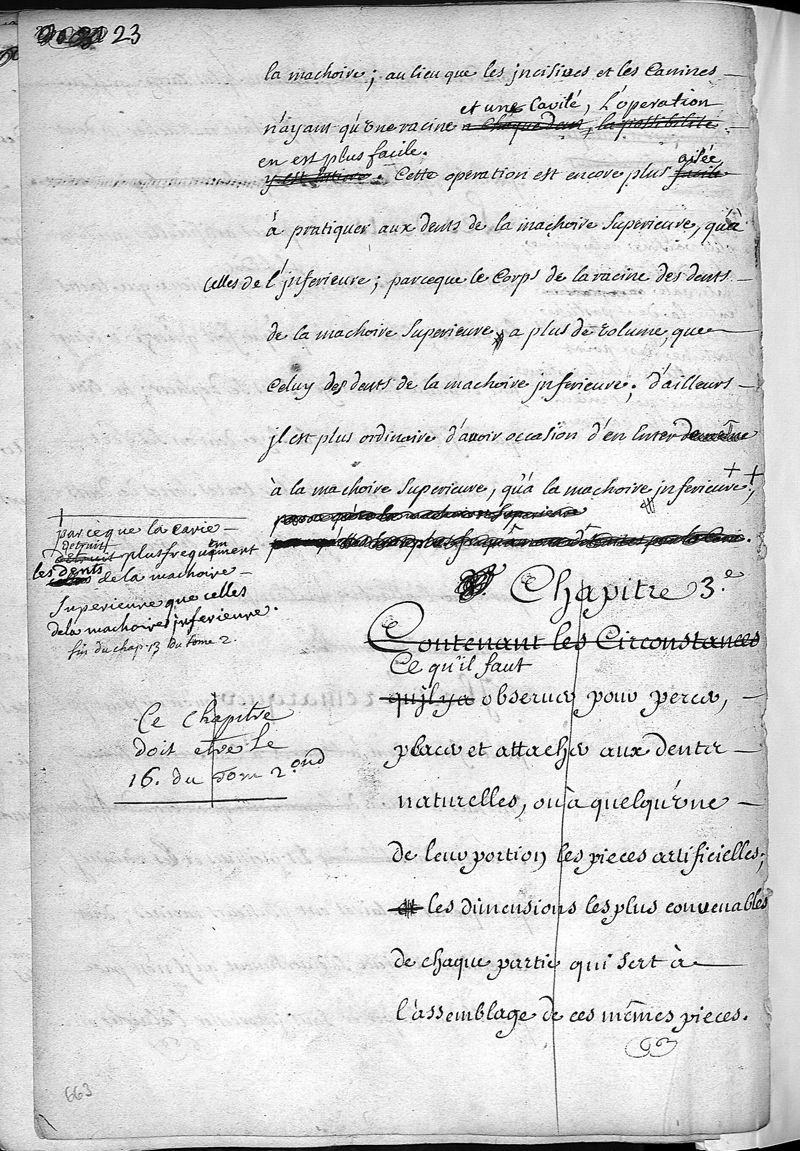 23
la machoire ; au lieu que les jncisives et les Canines
et une Cavité, l'operation
n'ayant qu'une racine a chaque dent, la possibilité
en est plus facile.
y est . Cette operation est encore plus facile
aisée
à pratiquer aux dents de la machoire Superieure, qu'a
celles de l'jnferieure ; parceque le Corps de la racine des dents
de la machoire Superieure, a plus de volume, que
Celuy des dents de la machoire jnferieure ; d'ailleurs
jl est plus ordinaire d'avoir occasion d'en Enter
à la machoire Superieure, qu'à la machoire jnferieure ++,
parce que la carie
detruit
detruit plus frequemment
les dents de la machoire
Superieure que celles
de la machoire jnferieure.
fin du chap. 13 du tome 2.
Chapitre 3.e
Contenant les Circonstances
Ce qu'il faut
qu'jl y a observer pour percer,
placer et attacher aux dents
naturelles, ou à quelqu'une
de leur portion les pieces artificielles ;
les dimensions les plus convenables
de chaque partie qui sert à
l'assemblage de ces mêmes pieces.
Ce Chapitre
doit etre Le
16. du Tom 2.ond
663